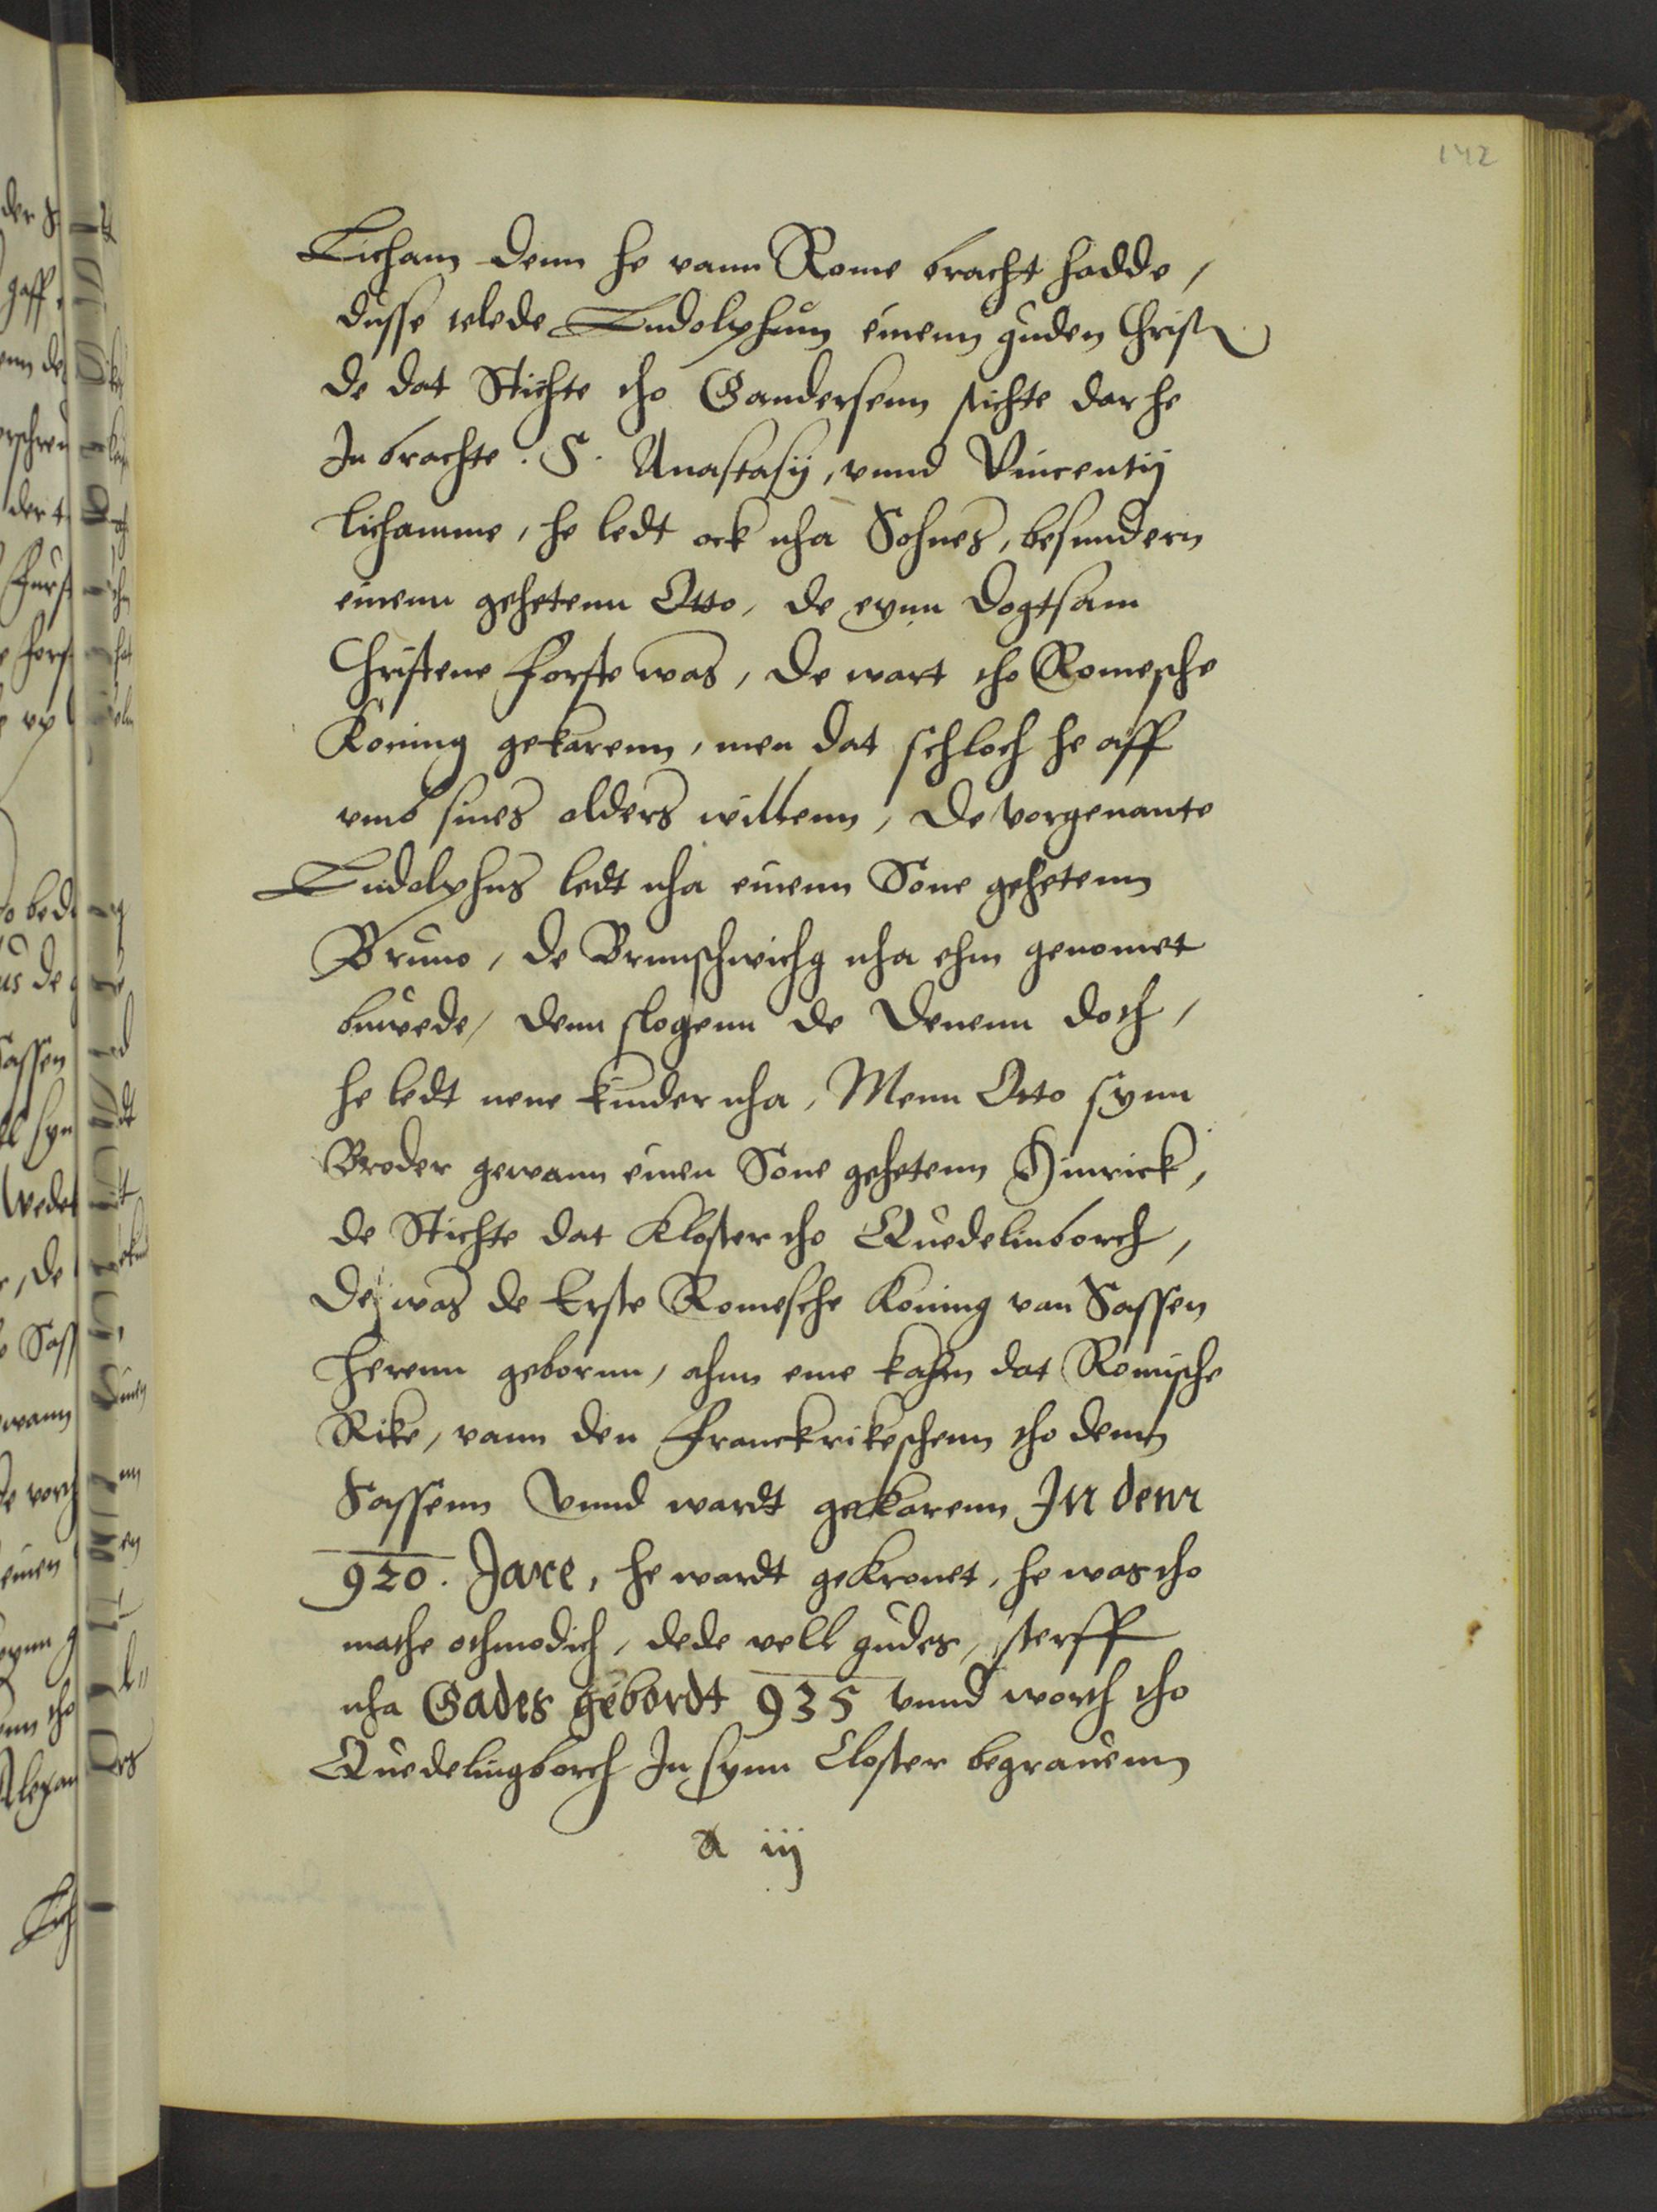 142
Licham denn he vann Rome bracht hadde,
dusse telede Ludolphum einenn guden Christ
de dat Stichte tho Gandersenn stichte dar he
In brachte. S. Anastasij, vnnd Vincentij
lichamme, he ledt ock nha Sohnes, besundern
einenn gehetenn Otto, de eynn dogtsam
Christene forste was, de wart tho Romesche
Koning gekarenn, men dat schloch he aff
vmb sines olders willenn, de vorgenante
Ludolphus ledt nha einenn Sone gehetenn
Bruno, de Brunschwichg nha ehm genomet
buwede, denn slogenn de Denenn doth,
he ledt nene kinder nha, Menn Otto synn
Broder gewann einen Sone gehetenn Hinrick,
de Stichte dat Kloster tho Quedelinborch,
de was de Erste Romesche Koning van Sassen
herenn gebornn, ahnn eme kahm dat Romische
Rike, vann den Franckrikeschenn tho denn
Sassenn Vnnd wardt gekarenn In denn
920. Jare, he wardt gekronet, he was tho
mathe othmodich, dede vell gudes, sterff
nha Gades gebordt 935 vnnd worth tho
Quedelingborch In synn Closter begrauenn
a iij